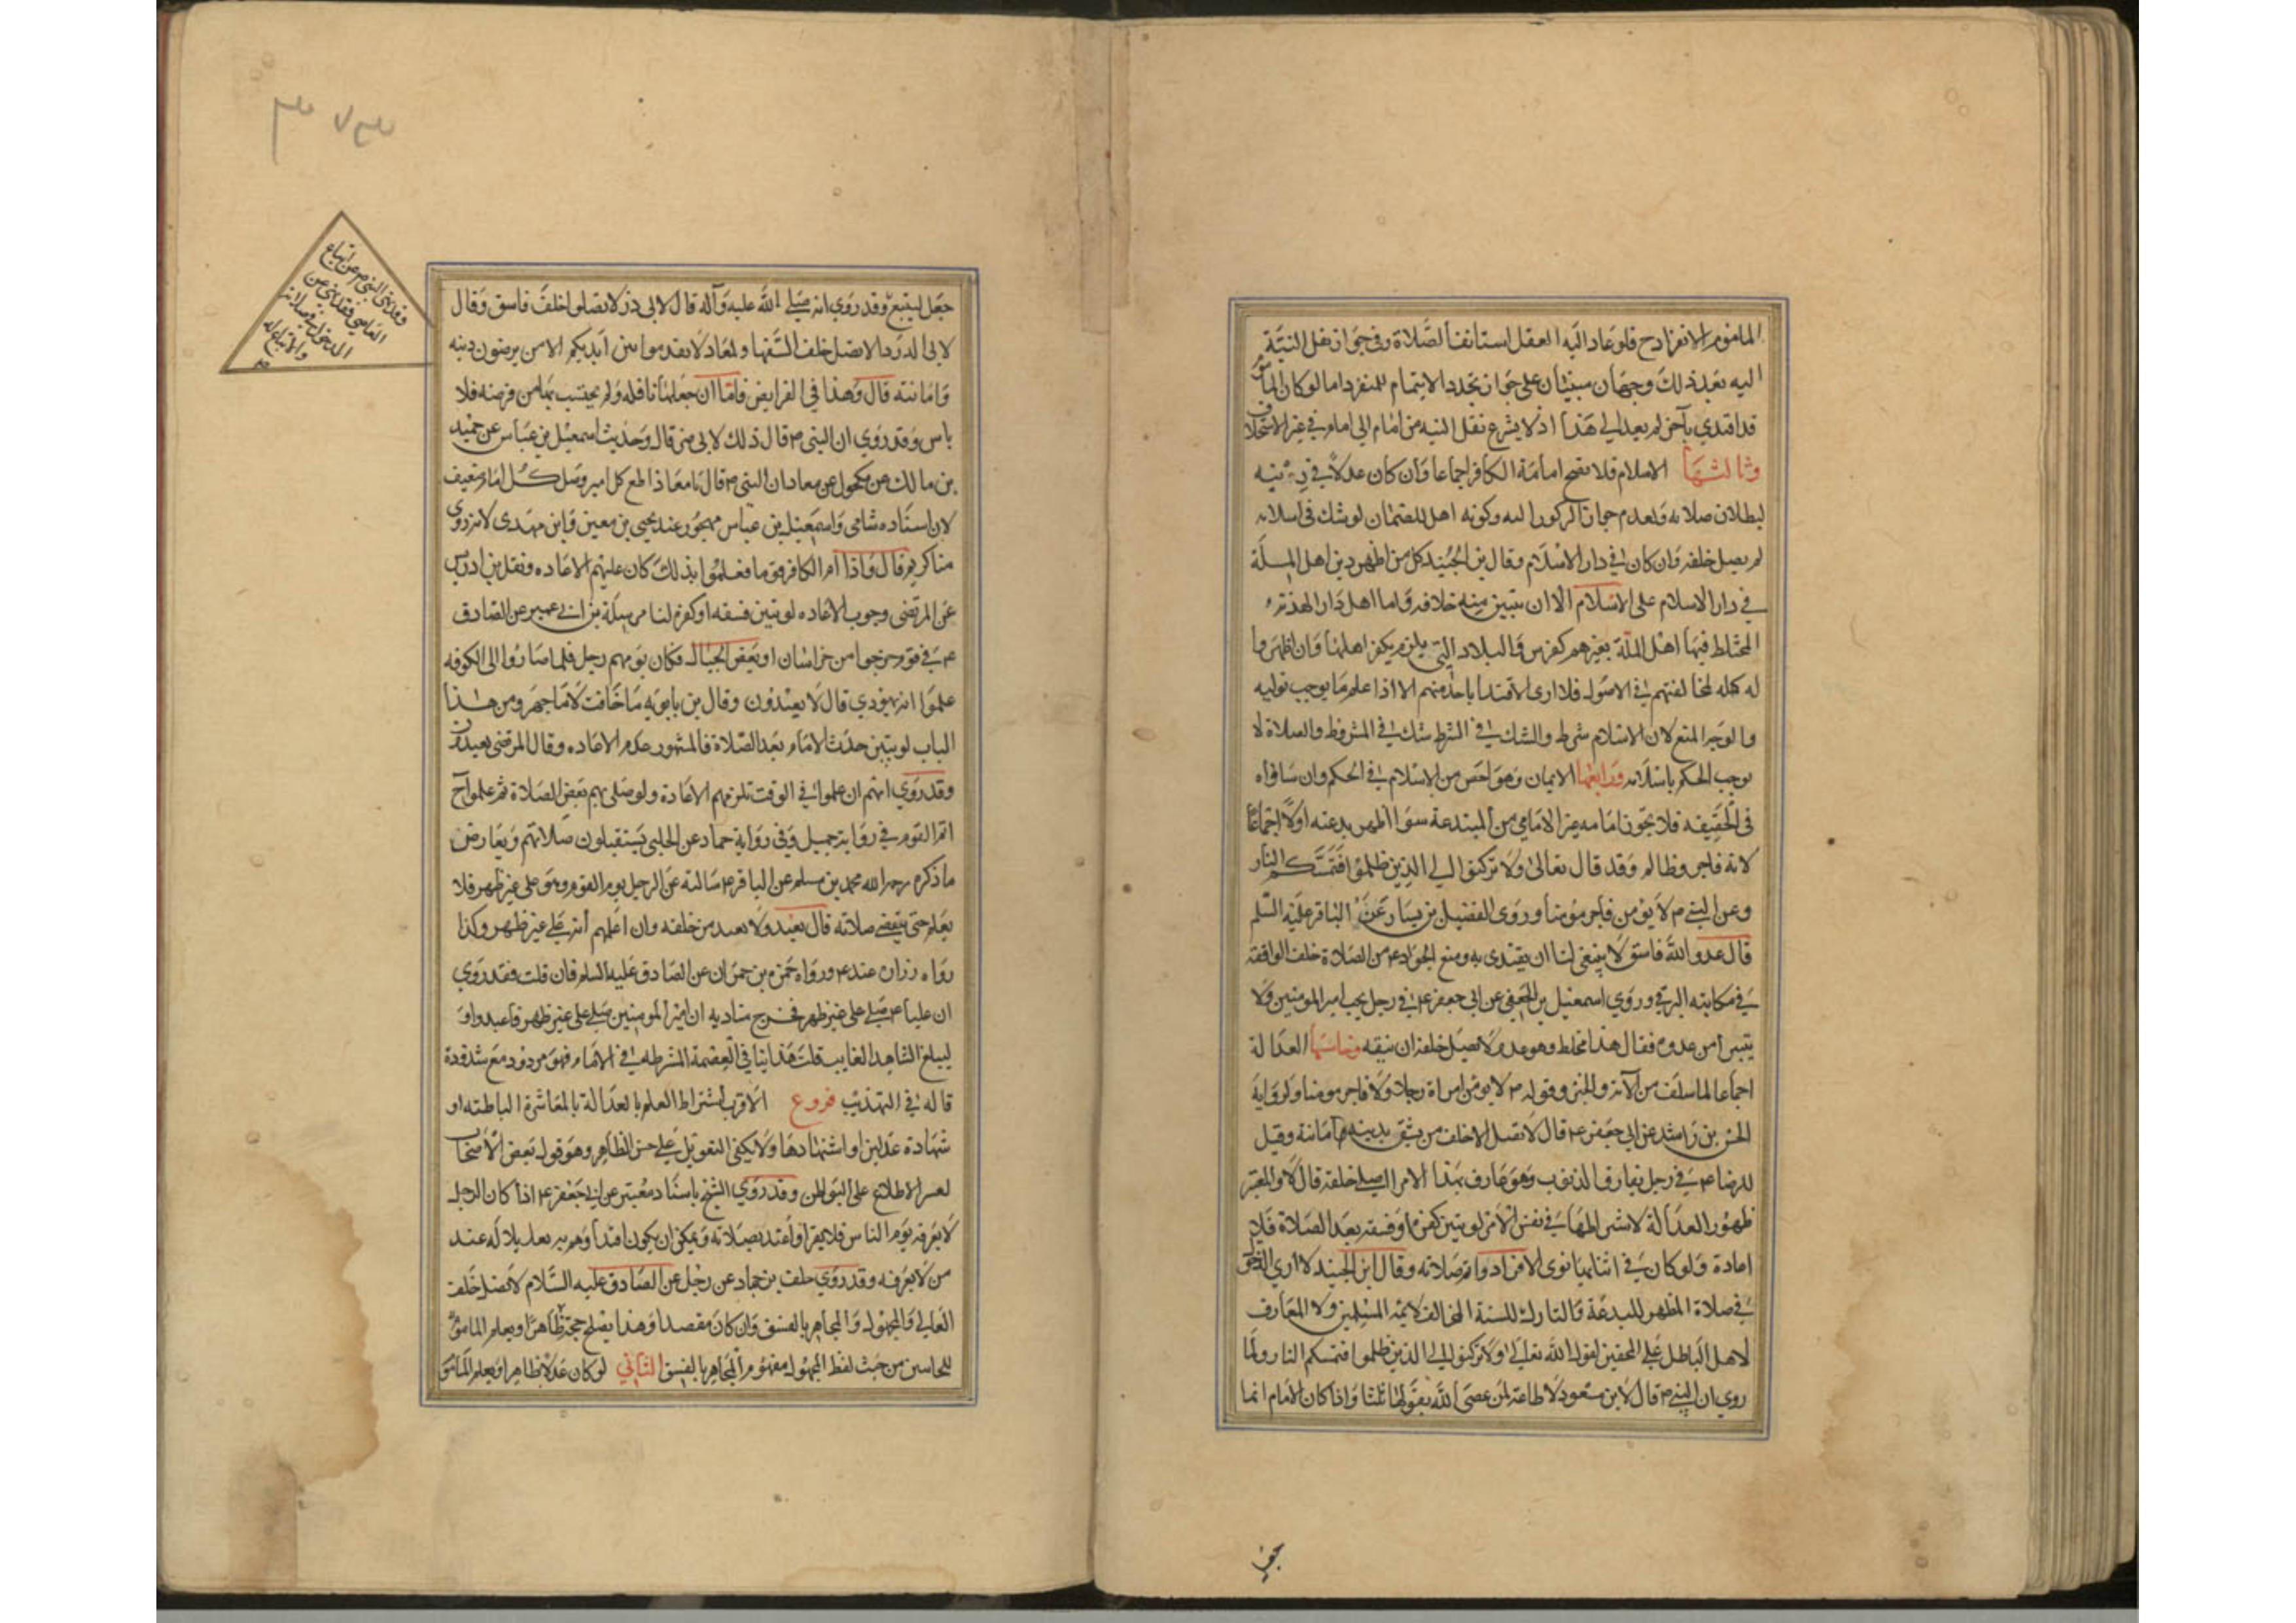 المأموم الانفراد ح فلو عاد اليه العقل استانف الصلاة وفي جواز نقل النية
اليه بعد ذلك وجهان مبنيان على جواز تجدد الايتمام للمنفرد اما لو كان المأموم
قد اقتدي بآخر لم يعد الي هذا اذ لا يشرع نقل النيه من امام الي امام في غير الاستخلاف
وثالثها الاسلام فلا تصح امامة الكافر اجماعا وان كان عدلا في دينه
لبطلان صلاته ولعدم جواز الركون اليه وكونه اهل للضمان لو شك في اسلامه
لم يصل خلفه وان كان في دار الاسلام وقال بن الجنيد كل من اظهر دين اهل الملة
في دار الاسلام على الاسلام الا ان يتبين منه خلافه واما اهل دار الهدنة
المختلط فيها اهل الملة بغيرهم كفرس والبلاد التي يلزم بكفر اهلها وان اظهروا
له كله لمخالفتهم في الاصول فلا ارى الاقتدا باحد منهم الا اذا علم ما يوجب توليه
والوجه المنع لان الاسلام شرط والشك في الشرط شك في المشروط والصلاة لا
يوجب الحكم باسلامه ورابعها الايمان وهو اخص من الاسلام في الحكم وان ساواه
في الحقيقه فلا يجوز امامه غير الامامي من المبتدعة سوا اظهر بدعته اولا اجماعا
لانه فاجر وظالم وقد قال تعالى ولا تركنوا الي الذين ظلموا فتمسكم النار
وعن النبي ص لا يؤمن فاجر مؤمنا وروي الفضيل بن يسار عن الباقر عليه السلم
قال عدو الله فاسق لا ينبغي لنا ان يقتدى به ومنع الجواد ع من الصلاة خلف الواقفة
في مكاتبته البرقي وروي اسمعيل الجعفي عن ابي جعفر ع في رجل يحب امير المومنين ولا
يتبرأ من عدوه فقال هذا مخلط وهو عدو لا تصل خلفه ان تتقيه وخامسها العدالة
اجماعا لما سلف من الآية والخبر وقوله ص لا يؤمن امراة رجلا ولا فاجر مومنا ولرواية
الحسن بن راشد عن ابي جعفر ع قال لا تصل الا خلف من تثق بدينه وامانته وقيل
للرضا ع في رجل يقارف الذنوب وهو عارف بهذا الامر اصلي خلفه قال لا والمعتبر
ظهور العدالة لا اشتراطها في نفس الامر لو تبين كفره او فسقه بعد الصلاة فلا
اعادة ولو كان في اثنايها نوى الانفراد واتم صلاته وقال ابن الجنيد لا اري الدخول
في صلاة المظهر للبدعة والتارك للسنة المخالف لايمة المسلمين ولا المعارف
لاهل الباطل على المحقين لقول الله تعالي ولا تركنوا الي الذين ظلموا فتمسكم النار ولما
روي ان النبي ص قال لابن مسعود لا طاعة لمن عصى الله يقولها ثلثا واذا كان الامام انما
جعل
جعل ليتبع وقد روي انه صلي الله عليه وآله قال لابي ذر لا تصلوا خلف فاسق وقال
لابي الدردا لا تصل خلف السفها ولمعاذ لا تقدموا بين ايديكم الا من يرضون دينه
وامانته قال وهذا في الفرايض فاما ان جعلها نافله ولم يحتسب بها من فرضه فلا
باس وقد روي ان النبي ص قال ذلك لابي ذر قال وحديث اسمعيل بن عياش عن حميد
بن مالك عن مكحول عن معاذ ان النبي ص قال يا معاذ اطع كل امير وصل خلف كل امام ضعيف
لان اسناده شامي واسمعيل بن عياش مهجور عند يحيي بن معين وابن مهدى لانه روي
مناكير قال واذا ام الكافر قوما فعلموا بذلك كان عليهم الاعاده ونقل بن ادريس
عن المرتضى وجوب الاعاده لو تبين فسقه او كفره لنا مرسلة بن ابي عمير عن الصادق
ع في قوم خرجوا من خراسان او بعض الجبال فكان يؤمهم رجل فلما صاروا الى الكوفه
علموا انه يهودي قال لا يعيدون وقال بن بابويه ما خافت لا ما جهر ومن هذا
الباب لو تبين حدث الامام بعد الصلاة فالمشهور عدم الاعاده وقال المرتضى يعيدون
وقد روي انهم ان علموا في الوقت تلزمهم الاعادة ولو صلى بهم بعض الصلاة ثم علموا ح
اتم القوم في رواية جميل وفي رواية حماد عن الحلبي يستقبلون صلاتهم ويعارض
ما ذكره رحمه الله محمد بن مسلم عن الباقر ع سالته عن الرجل يوم القوم وهو على غير ظهر فلا
يعلم حتي تنقضي صلاته قال يعيد ولا يعيد من خلفه وان اعلمهم أنه علي غير ظهر وكذا
رواه زراره عنه ع ورواه حمزه بن حمران عن الصادق عليه السلم فان قلت فقد روي
ان عليا ع صلي على غير ظهر فخرج مناديه ان امير المومنين صلي على غير ظهر فاعيدوا و
ليبلغ الشاهد الغايب قلت هذا ينافي العصمة المشترطه في الامام فهو مردود مع شذوذه
قاله في التهذيب فروع الاقرب اشتراط العلم بالعدالة بالمعاشرة الباطنه او
شهادة عدلين او اشتهارها ولا يكفي التعويل علي حسن الظاهر وهو قول بعض الاصحاب
لعسر الاطلاع علي البواطن وقد روي الشيخ باسناد معتبر عن ابي جعفر ع اذا كان الرجل
لا يعرفه يؤم الناس فلا يقرا واعتد بصلاته ويمكن ان يكون اقتداوهم به تعديلا له عند
من لا يعرفه وقد روي خلف بن حماد عن رجل عن الصادق عليه السلام لا تصل خلف
الغالي والمجهول والمجاهر بالفسق وان كان مقصدا وهذا يصلح حجة ظاهرا ويعلم الماموم
للجانبين من حيث لفظ المجهول مفهوم المجاهر بالفسق الثاني لو كان عدلا ظاهرا ويعلم المأموم
فقد نهى النبي ص عن اتباع
العاصي فقد نهى عن
الدخول في صلاته
والاتباع له